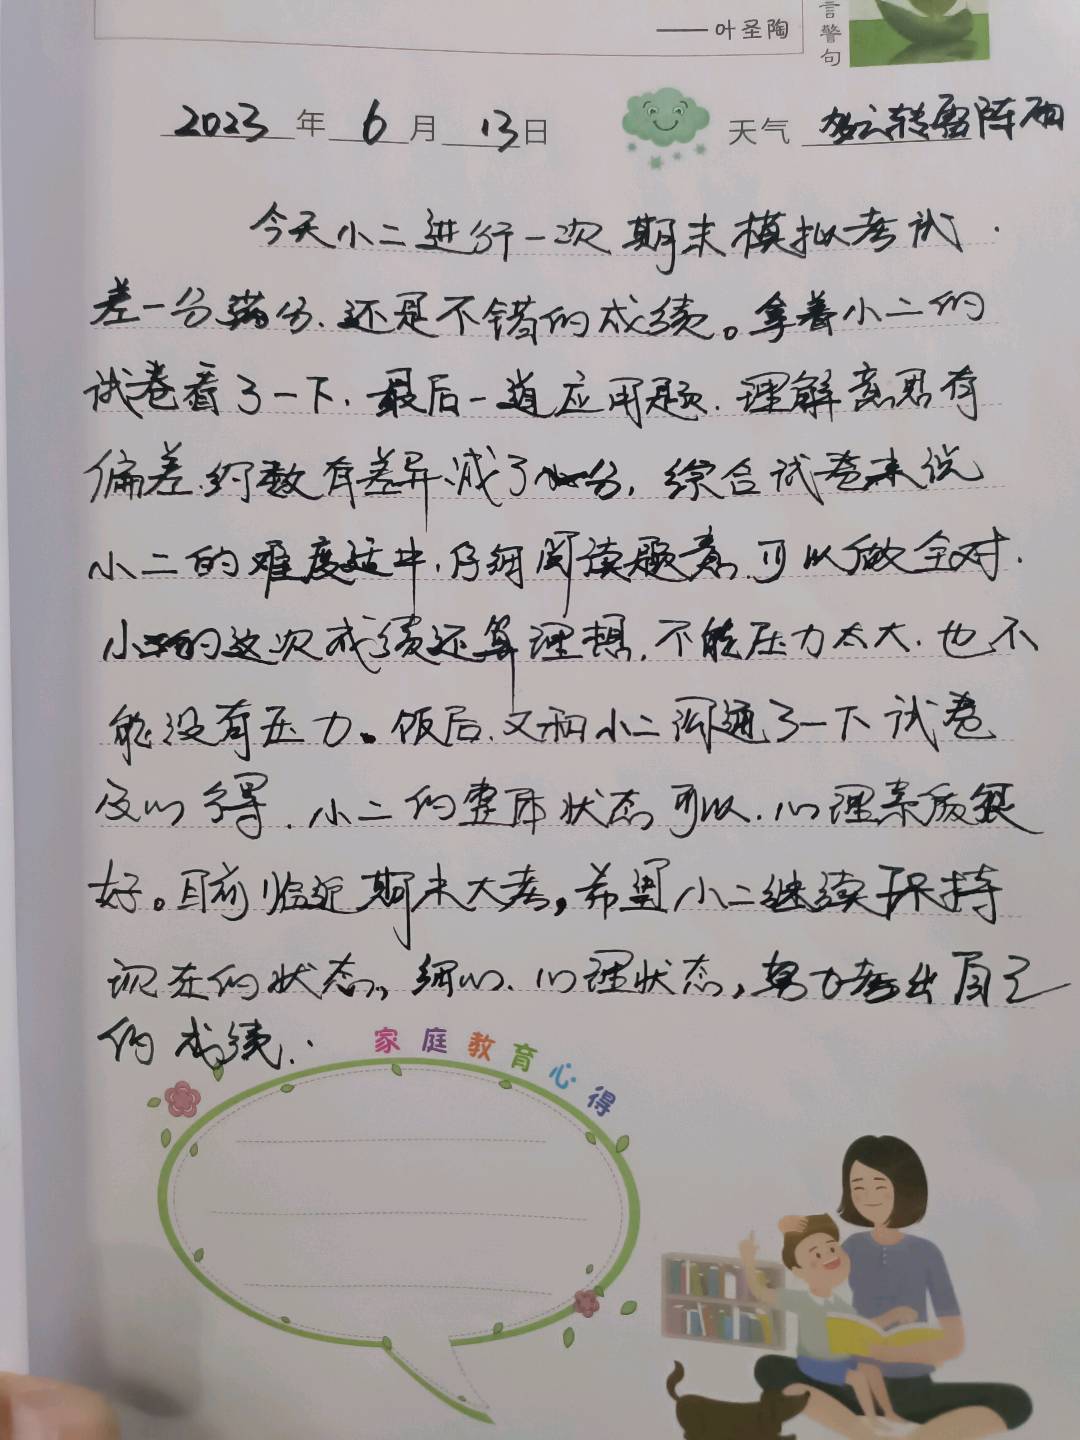 ——叶圣陶
言警句
2023年6月13日 天气 多云转雷阵雨
今天小二进行一次期末模拟考试.
差一分满分、还是不错的成绩。拿着小二的
试卷看了一下.最后一道应用题.理解意思有
偏差.约数有差异.减了分.综合试卷来说
小二的难度适中.仔细阅读题意.可以做全对.
小二的这次成绩还算理想.不能压力太大.也不
能没有压力。饭后.又和小二沟通了一下试卷
及心得.小二的整体状态可以.心理素质很
好。目前临近期末大考,希望小二继续保持
现在的状态,细心.心理状态,努力考出自己
的成绩..
家庭教育心得